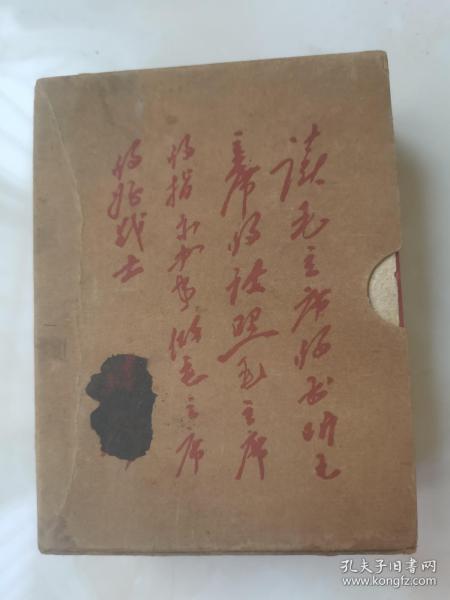 读毛主席的书听毛
主席的话照毛主席
的指示办事做毛主席
的好战士
孔夫子旧书网
www.kongfz.com